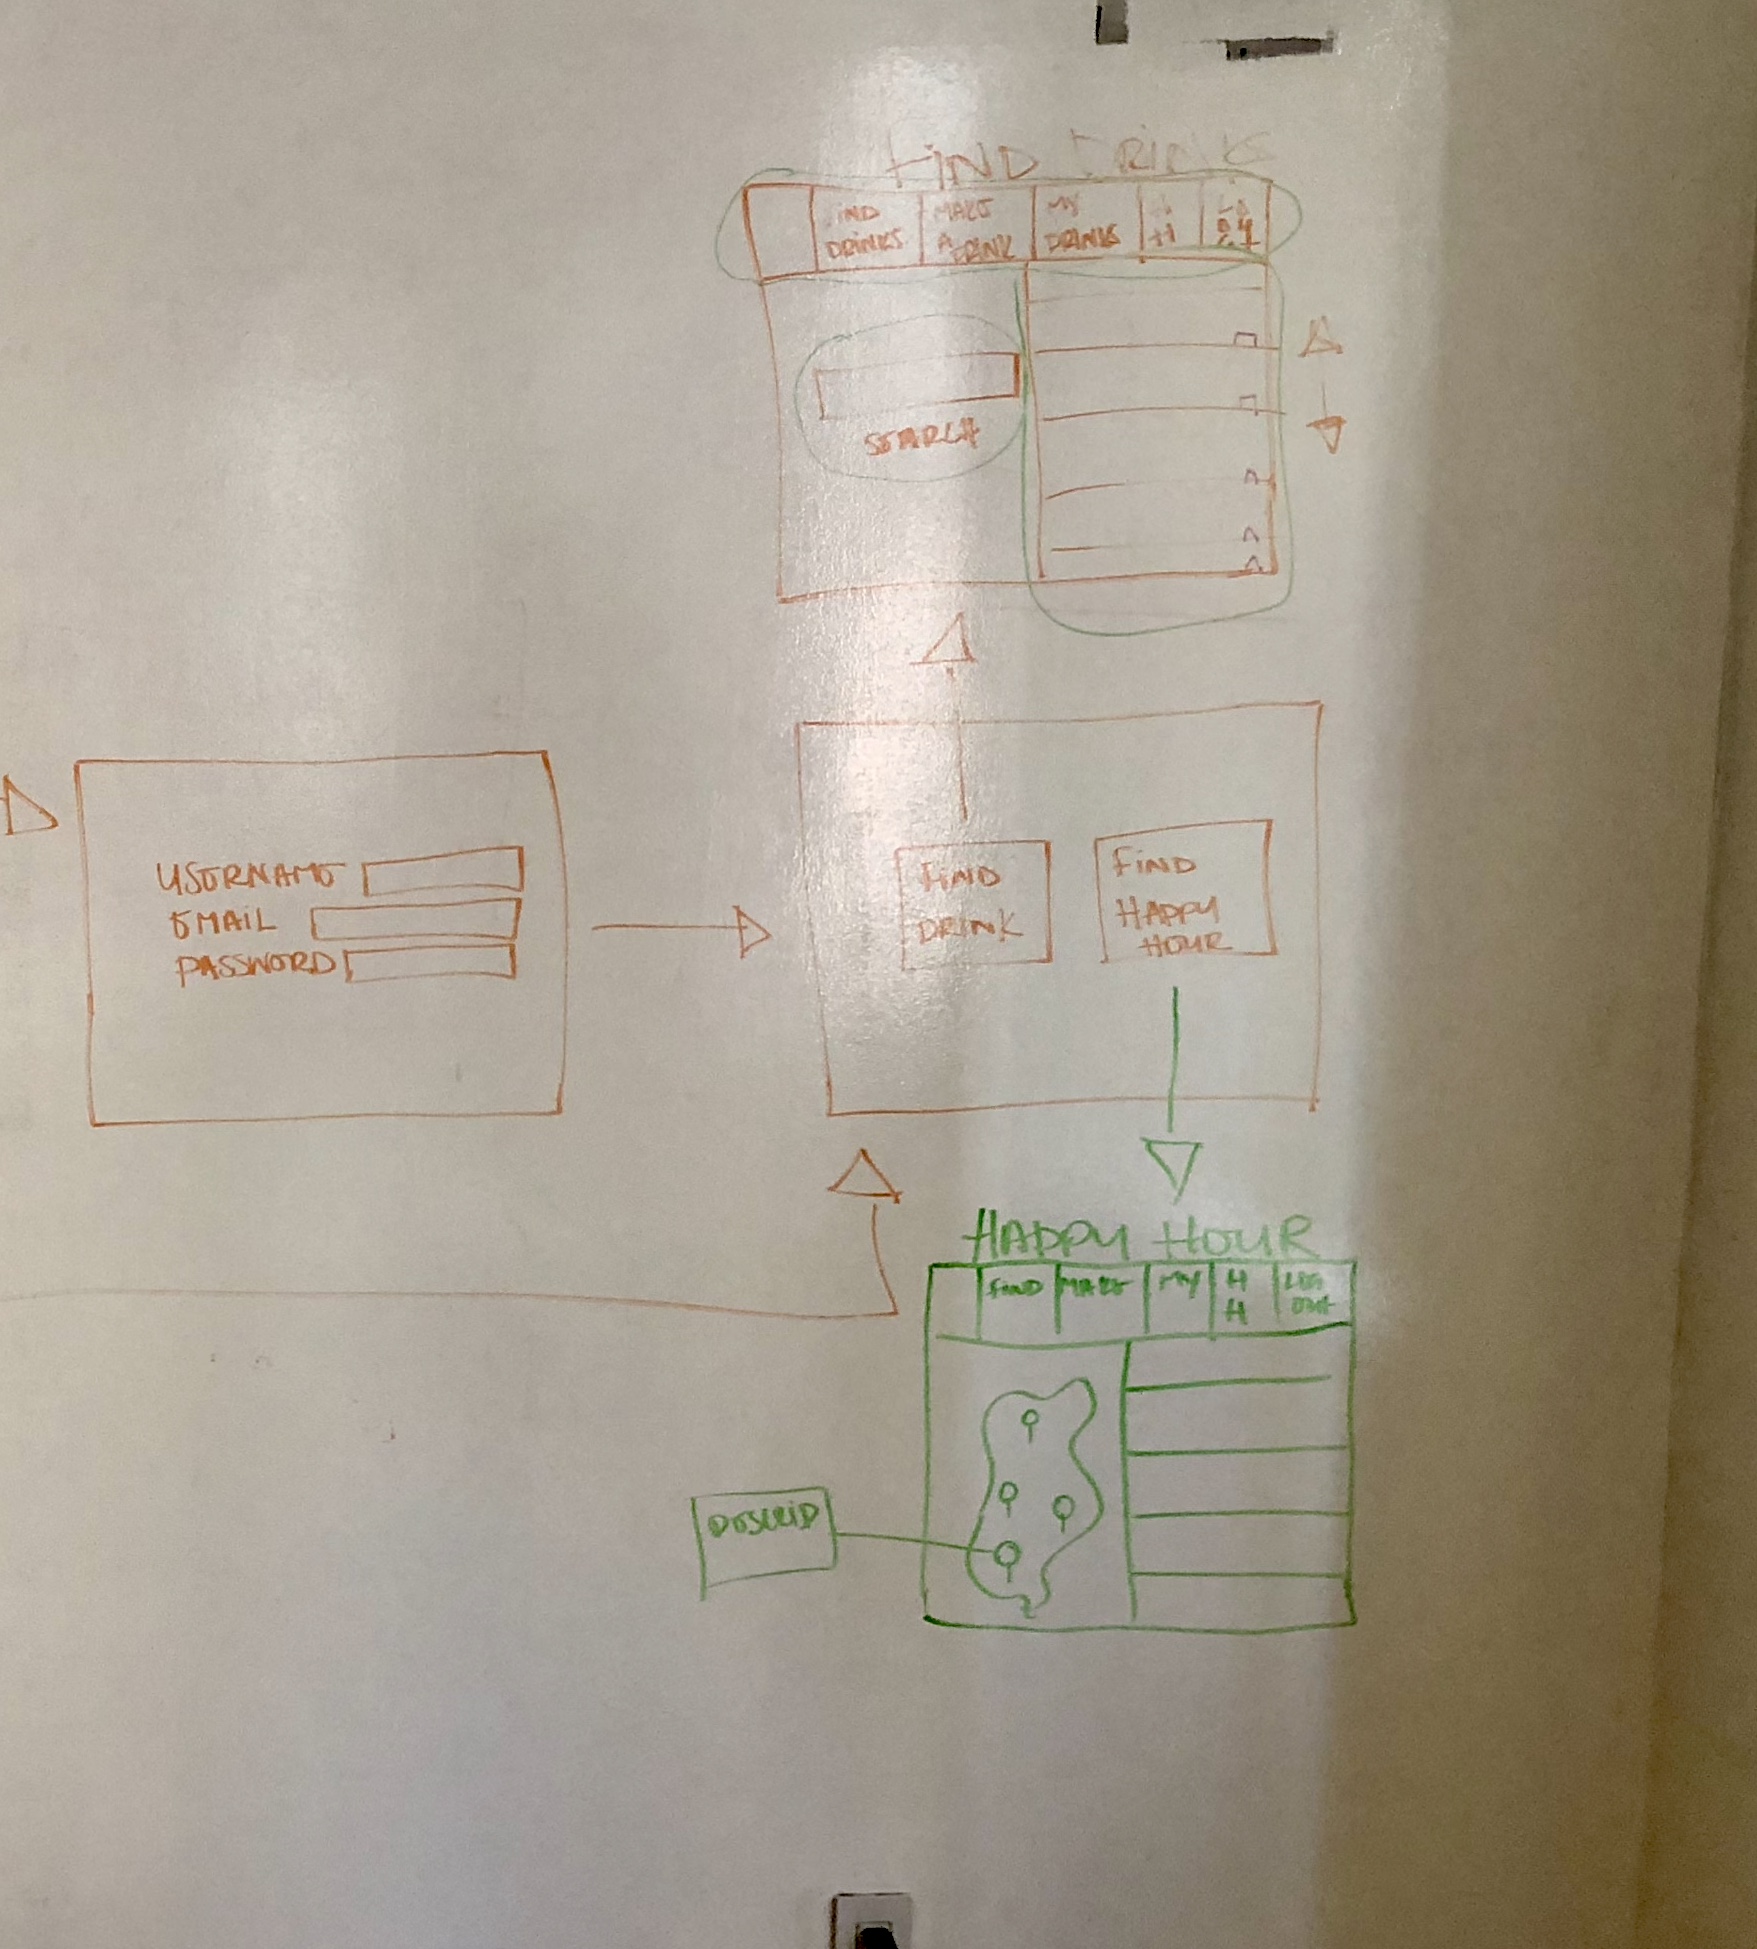 FIND DRINKS
FIND
DRINKS
MAKE
A DRINK
MY
DRINKS
SEARCH
USERNAME
EMAIL
PASSWORD
FIND
DRINK
FIND
HAPPY
HOUR
HAPPY HOUR
FIND
MAKE
MY
H
H
LOG
OUT